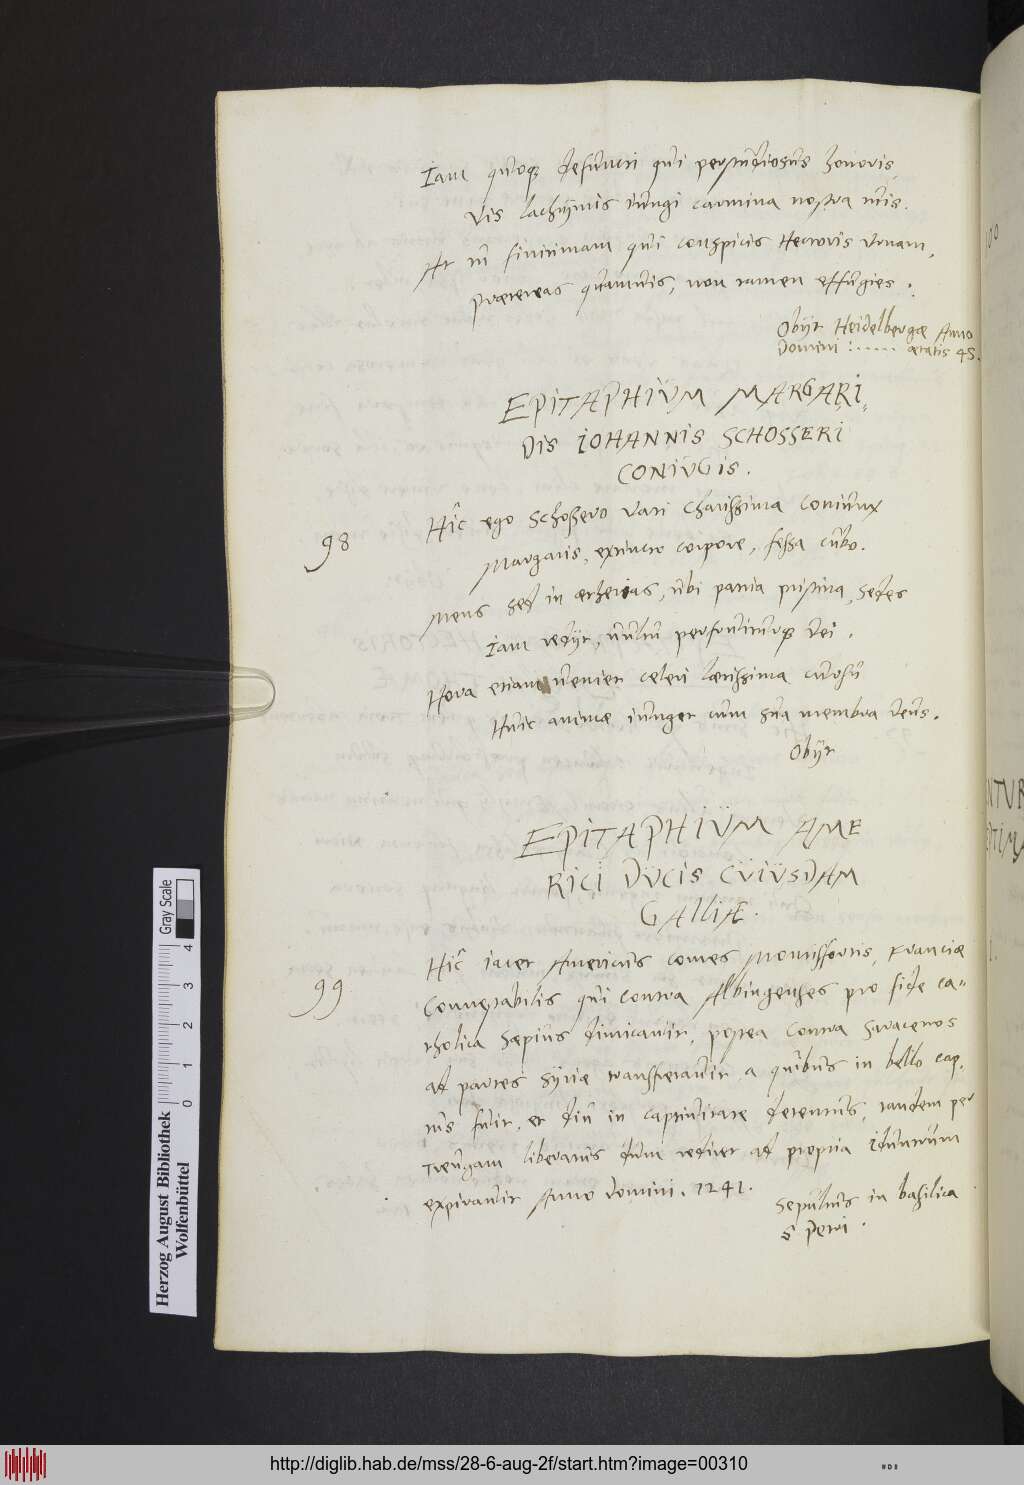 Iam quoque defuncti qui perstudiosus honoris,
Vis lachrymis iungi carmina nostra tuis.
At tu finitimam qui conspicis Hectoris Vrnam,
Praetereas quamuis, non tamen effugies.
Obijt Heidelbergæ Anno
Domini :...... ætatis 45.
EPITAPHIVM MARGARI,,
DIS IOHANNIS SCHOSSERI
CONIVGIS.
98
Hic ego Schoßero Vati Charißima Coniunx
Margaris, extincto corpore, feßa cubo.
Mens sed in æthereas, ubi patria pristina, sedes
Iam redijt, uultu perfruiturque Dei.
Hora etiam ueniet celeri lætißima cursu
Huic animæ iunget cum sua membra Deus.
Obijt
EPITAPHIVM AME
RICI DVCIS CVIVSDAM
GALLIÆ.
99
Hic iacet Americus comes Montißfortis, Franciæ
Connestabilis qui contra Albingenses pro fide ca=
tholica sæpius dimicauit, postea Contra Saracenos
ad partes Syriæ transfretauit, a quibus in bello cap,
tus fuit, et diu in captiuitate detentus, tandem per
treugam liberatus dum rediret ad propria iduntum
expirauit Anno Domini. 1241.
Sepultus in basilica
S Petri.
Herzog August Bibliothek
Wolfenbüttel
0 1 2 3 4
Gray Scale
http://diglib.hab.de/mss/28-6-aug-2f/start.htm?image=00310